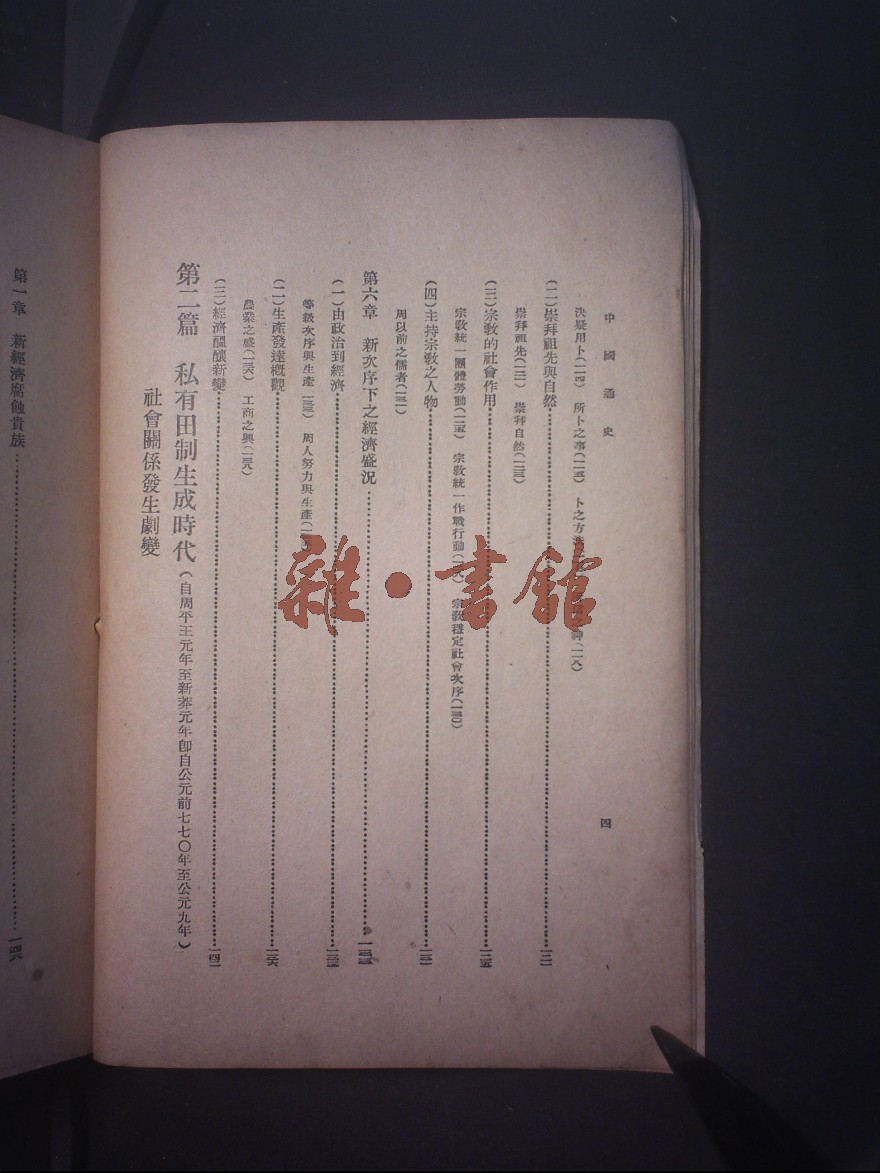 中國通史
四
決疑用卜(一一四) 所卜之事(一一五) 卜之方法 神(一一八)
(二)崇拜祖先與自然……一二一
崇拜祖先(一二一) 崇拜自然(一二三)
(三)宗教的社會作用……一二五
宗教統一團體勞動(一二五) 宗教統一作戰行動(一二八) 宗教穩定社會次序(一三〇)
(四)主持宗教之人物……一三一
周以前之儒者(一三一)
第六章 新次序下之經濟盛況……一三三
(一)由政治到經濟……一三三
等級次序與生產(一三三) 周人努力與生產
(二)生產發達概觀……一三六
農業之盛(一三六) 工商之興(一三八)
(三)經濟醞釀新變……一四二
第二篇 私有田制生成時代(自周平王元年至新莽元年卽自公元前七七〇年至公元九年)
社會關係發生劇變
第一章 新經濟腐蝕貴族……一四八
雜·書館